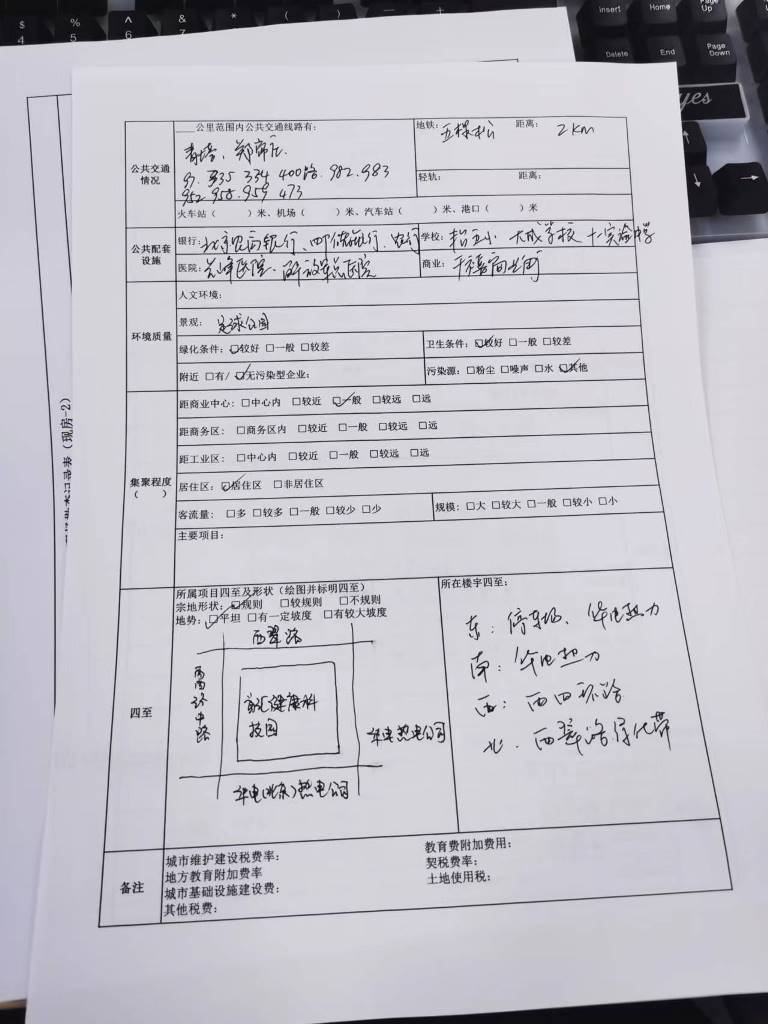 Insert Home Page Up
Delete End Page Down
$ 4 % 5 ^ 6 & 7 * ( ) — +
yes
公里范围内公共交通线路有：
地铁： 五棵松 距离： 2km
公共交通情况
青塔、郑常庄
97. 335 334 400路. 982. 983
952 958. 959 473
轻轨： 距离：
火车站（ ）米、机场（ ）米、汽车站（ ）米、港口（ ）米
公共配套设施
银行：北京农商银行、邮储银行、农行
学校： 大成学校 十一实验中学
医院： 医院、解放军总医院
商业： 千禧商业街
环境质量
人文环境：
景观： 足球公园
绿化条件：☑较好 □一般 □较差
卫生条件：☑较好 □一般 □较差
附近 □有/☑无污染型企业：
污染源：□粉尘 □噪声 □水 ☑其他
集聚程度（ ）
距商业中心：□中心内 □较近 ☑一般 □较远 □远
距商务区： □商务区内 □较近 □一般 □较远 □远
距工业区： □中心内 □较近 □一般 □较远 □远
居住区：☑居住区 □非居住区
客流量：□多 □较多 □一般 □较少 □少
规模：□大 □较大 □一般 □较小 □小
主要项目：
四至
所属项目四至及形状（绘图并标明四至）
宗地形状：☑规则 □较规则 □不规则
地势：☑平坦 □有一定坡度 □有较大坡度
西翠路
西四环中路
健康科技园
华电热电公司
华电（北京）热电公司
所在楼宇四至：
东：停车场、华电热力
南：华电热力
西：西四环路
北：西翠路绿化带
备注
城市维护建设税费率：
教育费附加费用：
地方教育附加费率
契税费率：
城市基础设施建设费：
土地使用税：
其他税费：
（现房-2）